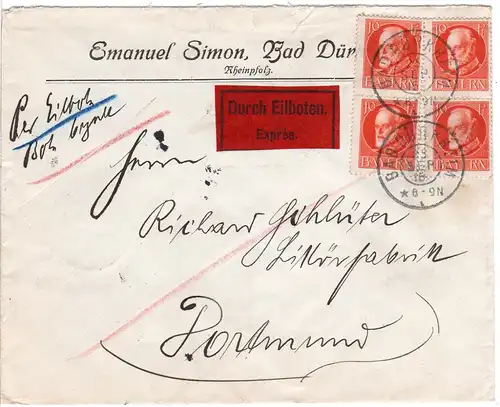 Emanuel Simon, Bad Dür
Rheinpfalz.
Per Eilbote
Bote bezahlt
Durch Eilboten.
Exprès.
10 10
BAYERN BAYERN
10 10
BAYERN BAYERN
8-9N
Herrn
Richard Schlüter
Likörfabrik
Dortmund